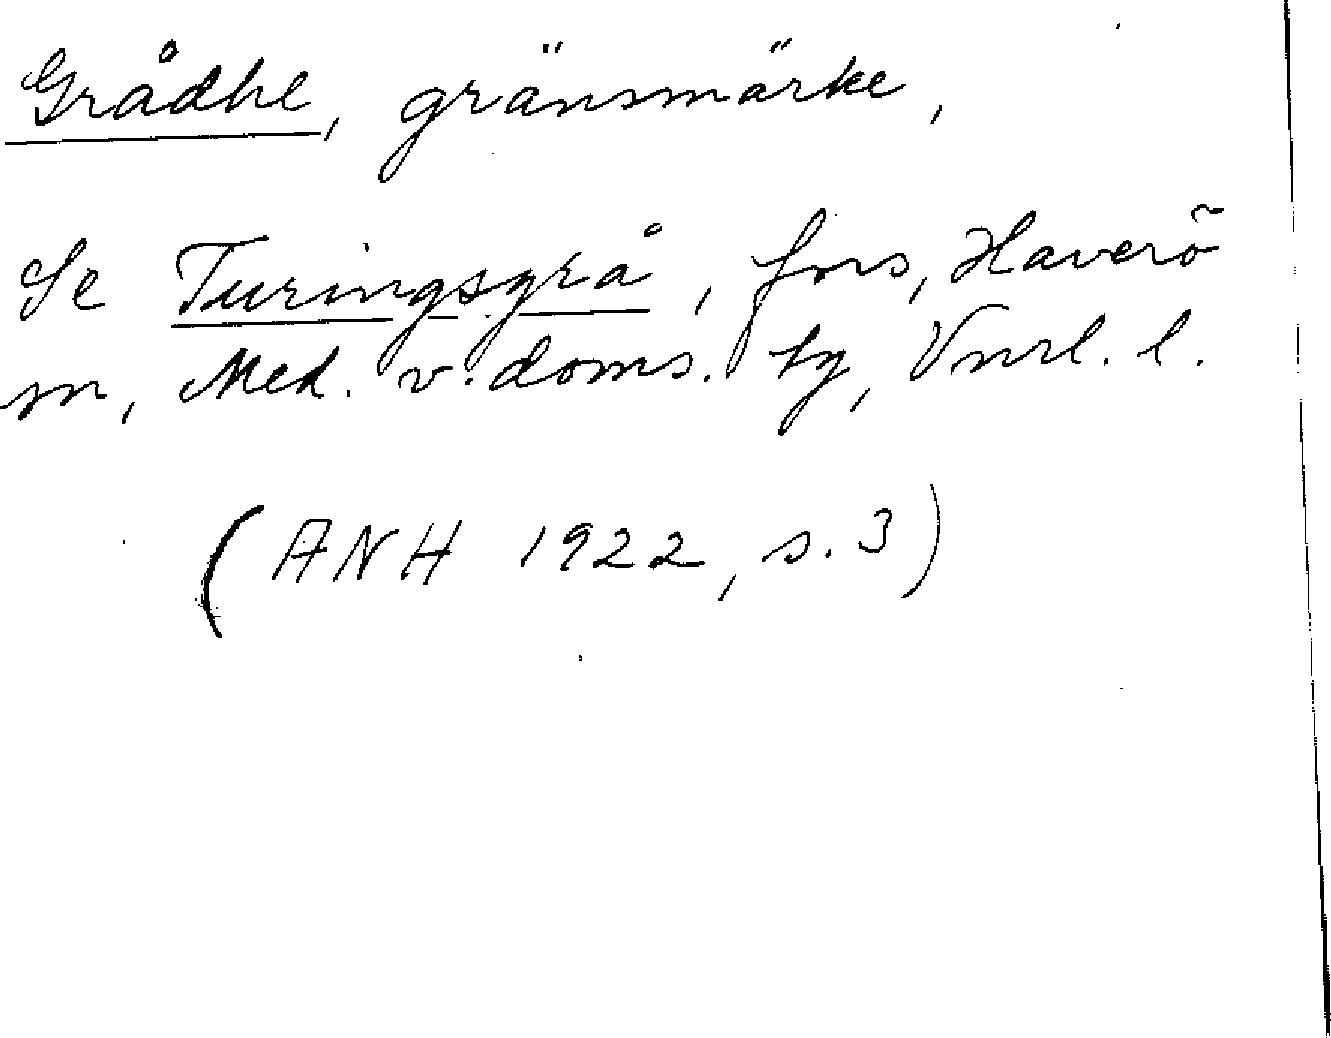 Grådhe, gränsmärke,
Se Turingsgrå, fors, Haverö
sn, Med. v. doms. tg, Vnrl. l.
(ANH 1922, s. 3)